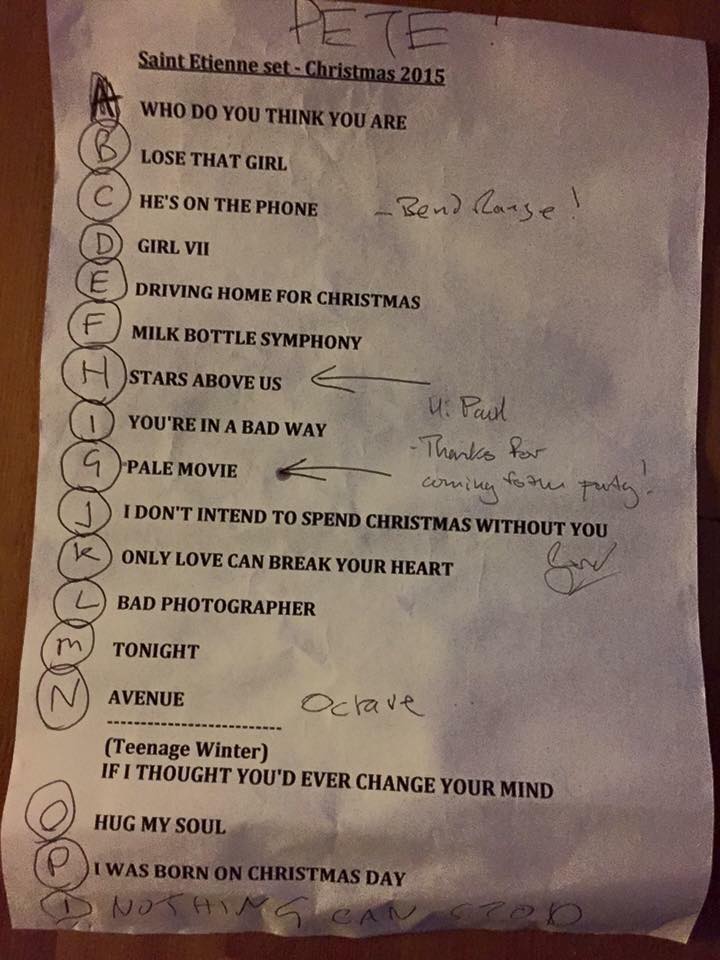 PETE!
Saint Etienne set - Christmas 2015
A WHO DO YOU THINK YOU ARE
B LOSE THAT GIRL
C HE'S ON THE PHONE - Bend Range!
D GIRL VII
E DRIVING HOME FOR CHRISTMAS
F MILK BOTTLE SYMPHONY
H STARS ABOVE US
Hi Paul
I YOU'RE IN A BAD WAY
- Thanks for
G PALE MOVIE
coming to our party!
J I DON'T INTEND TO SPEND CHRISTMAS WITHOUT YOU
K ONLY LOVE CAN BREAK YOUR HEART
L BAD PHOTOGRAPHER
M TONIGHT
N AVENUE Octave
------------------------
(Teenage Winter)
IF I THOUGHT YOU'D EVER CHANGE YOUR MIND
O HUG MY SOUL
P I WAS BORN ON CHRISTMAS DAY
NOTHING CAN STOP